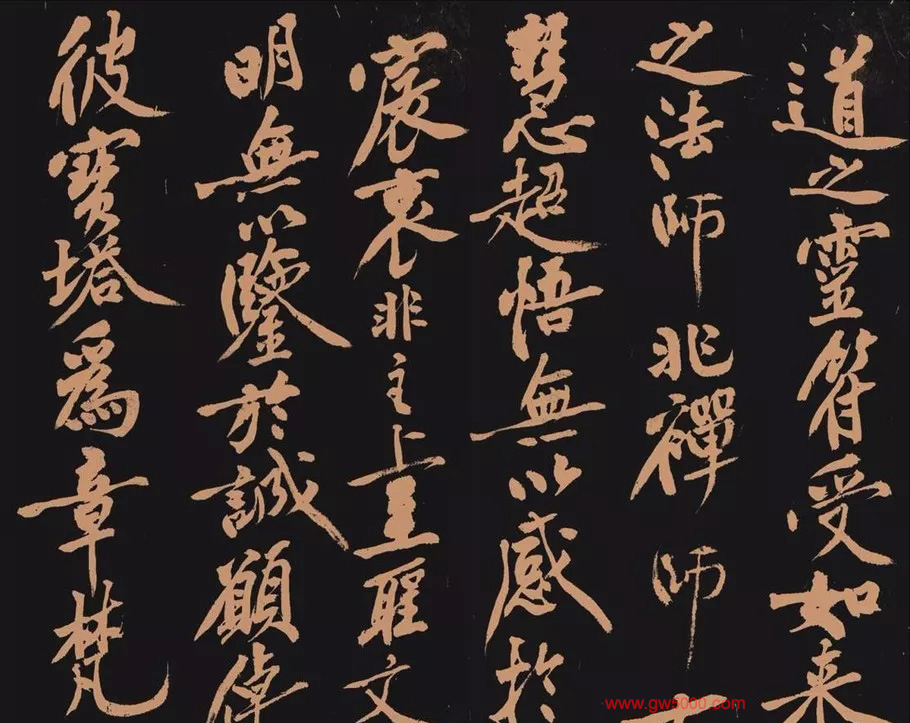 道之靈符受如来
之法師非禪師
慧忍超悟無以感於
宸衷非主上至聖文
明無以鑒於誠願倬
彼寶塔為章梵
www.gw5000.com